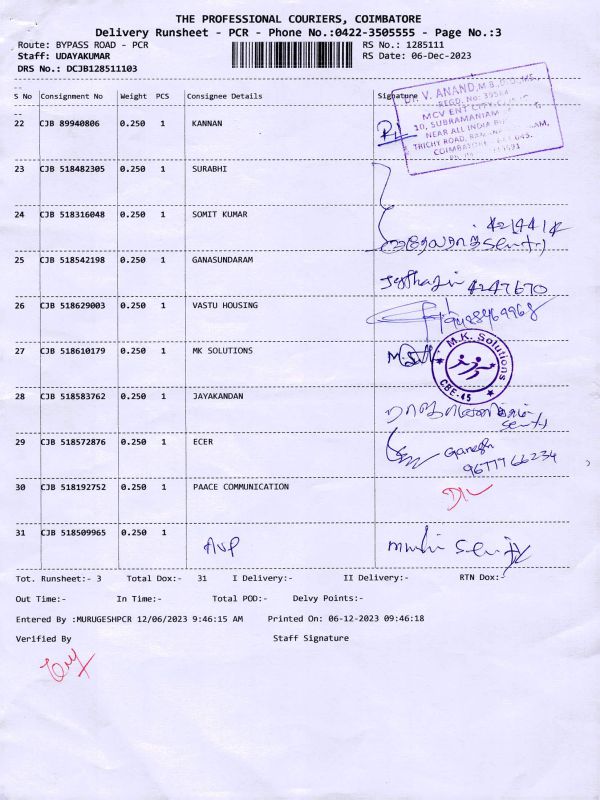 THE PROFESSIONAL COURIERS, COIMBATORE
Delivery Runsheet - PCR - Phone No.:0422-3505555 - Page No.:3
Route: BYPASS ROAD - PCR RS No.: 1285111
Staff: UDAYAKUMAR RS Date: 06-Dec-2023
DRS No.: DCJB128511103
S No Consignment No Weight PCS Consignee Details Signature
Dr. V. ANAND, M.B.B.S.
MCV ENT CITY
10, SUBRAMANIAM
NEAR ALL INDIA
TRICHY ROAD,
COIMBATORE
22 CJB 89940806 0.250 1 KANNAN
23 CJB 518482305 0.250 1 SURABHI
24 CJB 518316048 0.250 1 SOMIT KUMAR
25 CJB 518542198 0.250 1 GANASUNDARAM
4247670
26 CJB 518629003 0.250 1 VASTU HOUSING
27 CJB 518610179 0.250 1 MK SOLUTIONS
M.K. Solutions
CBE-45
28 CJB 518583762 0.250 1 JAYAKANDAN
29 CJB 518572876 0.250 1 ECER
Ganesh
9677766234
30 CJB 518192752 0.250 1 PAACE COMMUNICATION
31 CJB 518509965 0.250 1
Tot. Runsheet:- 3 Total Dox:- 31 I Delivery:- II Delivery:- RTN Dox:-
Out Time:- In Time:- Total POD:- Delvy Points:-
Entered By :MURUGESHPCR 12/06/2023 9:46:15 AM Printed On: 06-12-2023 09:46:18
Verified By Staff Signature